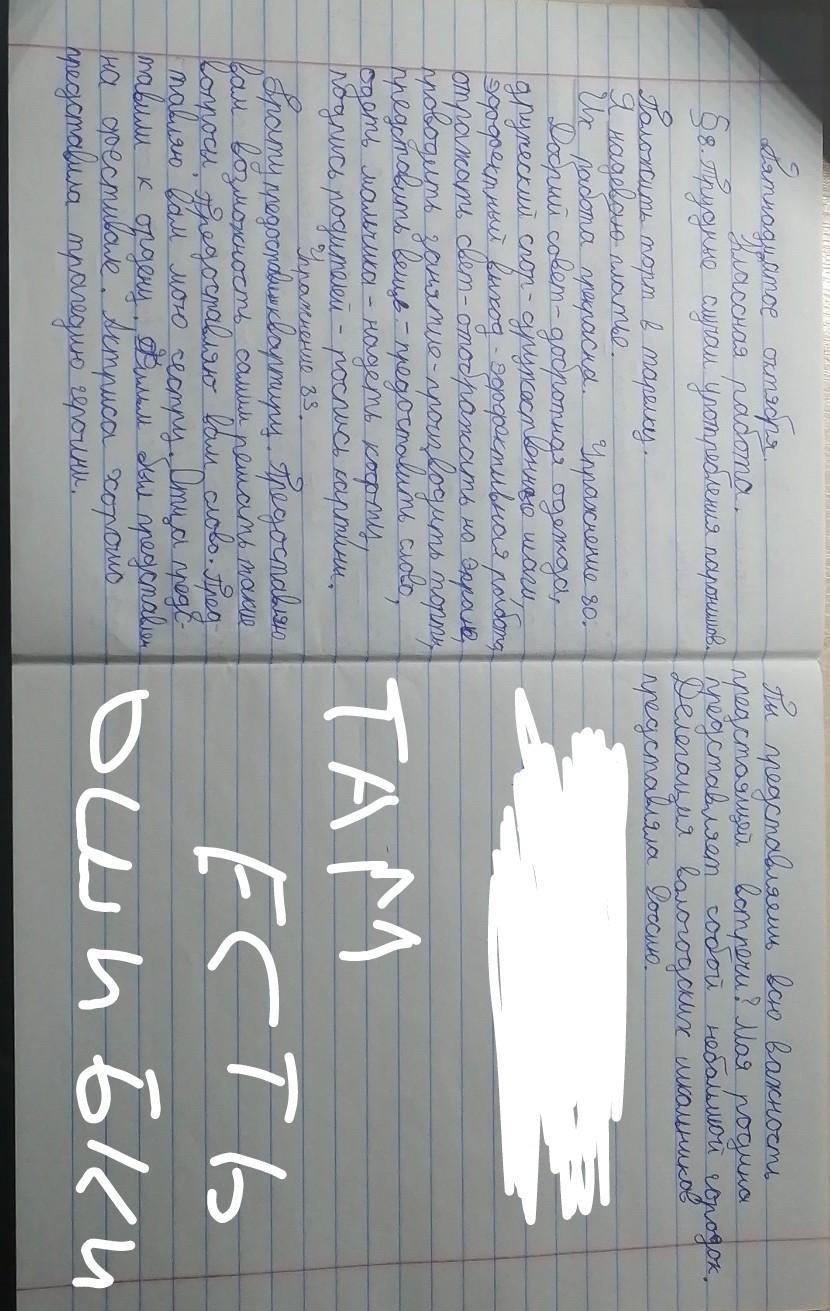 Пятнадцатое октября.
Классная работа.
§8. Трудные случаи употребления паронимов.
Положить торт в тарелку.
Я надеваю платье.
Их работа прекрасна. Упражнение 80.
Добрый совет - добротная одежда,
дружеский спор - дружественные шаги,
эффектный выход - эффективная работа,
отражать свет - отображать на экране,
проводить занятие - производить торты,
представить вещь - предоставить слово,
одеть мальчика - надеть кофту,
подпись родителей - роспись картины.
Упражнение 83.
Брату предоставили квартиру. Предоставляю
вам возможность самим решать такие
вопросы. Предоставляю вам слово. Пред-
тавляю вам мою сестру. Отца предс-
тавили к ордену. Фильм был представлен
на фестивале. Актриса хорошо
представила трагедию героини.
Ты представляешь всю важность
предстоящей встречи? Моя родина
представляет собой небольшой городок.
Делегация вологодских школьников
представляла Россию.
ТАМ
ЕСТЬ
ОШИБКИ